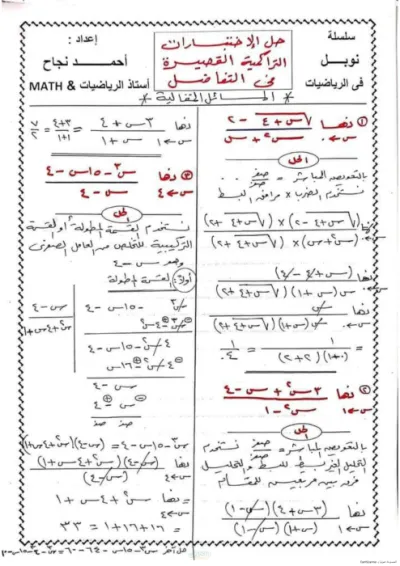 سلسلة
نوبل
فى الرياضيات
حل الاختبارات
التراكمية القصيرة
فى التفاضل
إعداد :
أحمد نجاح
أستاذ الرياضيات & MATH
* المسائل المقالية *
① نها (√(س + ٤) - ٢) / (س² + س)
س ← ٠
الحل
بالتعويض المباشر = صفر / صفر
نستخدم الضرب × مرافق البسط
نها (√(س+٤) - ٢) × (√(س+٤) + ٢) / (س² + س) × (√(س+٤) + ٢)
نها (س + ٤ - ٤) / س (س + ١) (√(س+٤) + ٢)
نها س / س (س+١) (√(س+٤) + ٢)
س ← ٠
= ١ / (٠+١) (٢+٢) = ١ / ٤
② نها (٣س² + س - ٤) / (س² - ١)
س ← ١
الحل
بالتعويض المباشر = صفر / صفر نستخدم
التحليل
فرق بين مربعين للمقام
نها (٣س + ٤) (س - ١) / (س + ١) (س - ١)
س ← ١
نها (٣س + ٤) / (س + ١) = (٤+٣) / (١+١) = ٧ / ٢
س ← ١
③ نها (س³ - ١٥س - ٤) / (س - ٤)
س ← ٤
الحل
نستخدم القسمة المطولة أو القسمة
التركيبية للتخلص من العامل الصفرى
وهو س - ٤
أولاً: القسمة المطولة
س³ - ١٥س - ٤
س - ٤
س² + ٤س + ١
س³ - ٤س²
٤س² - ١٥س - ٤
٤س² - ١٦س
س - ٤
س - ٤
صفر صفر
س³ - ١٥س - ٤ = (س - ٤) (س² + ٤س + ١)
نها (س - ٤) (س² + ٤س + ١) / (س - ٤)
س ← ٤
= نها س² + ٤س + ١
س ← ٤
= ١٦ + ١٦ + ١ = ٣٣